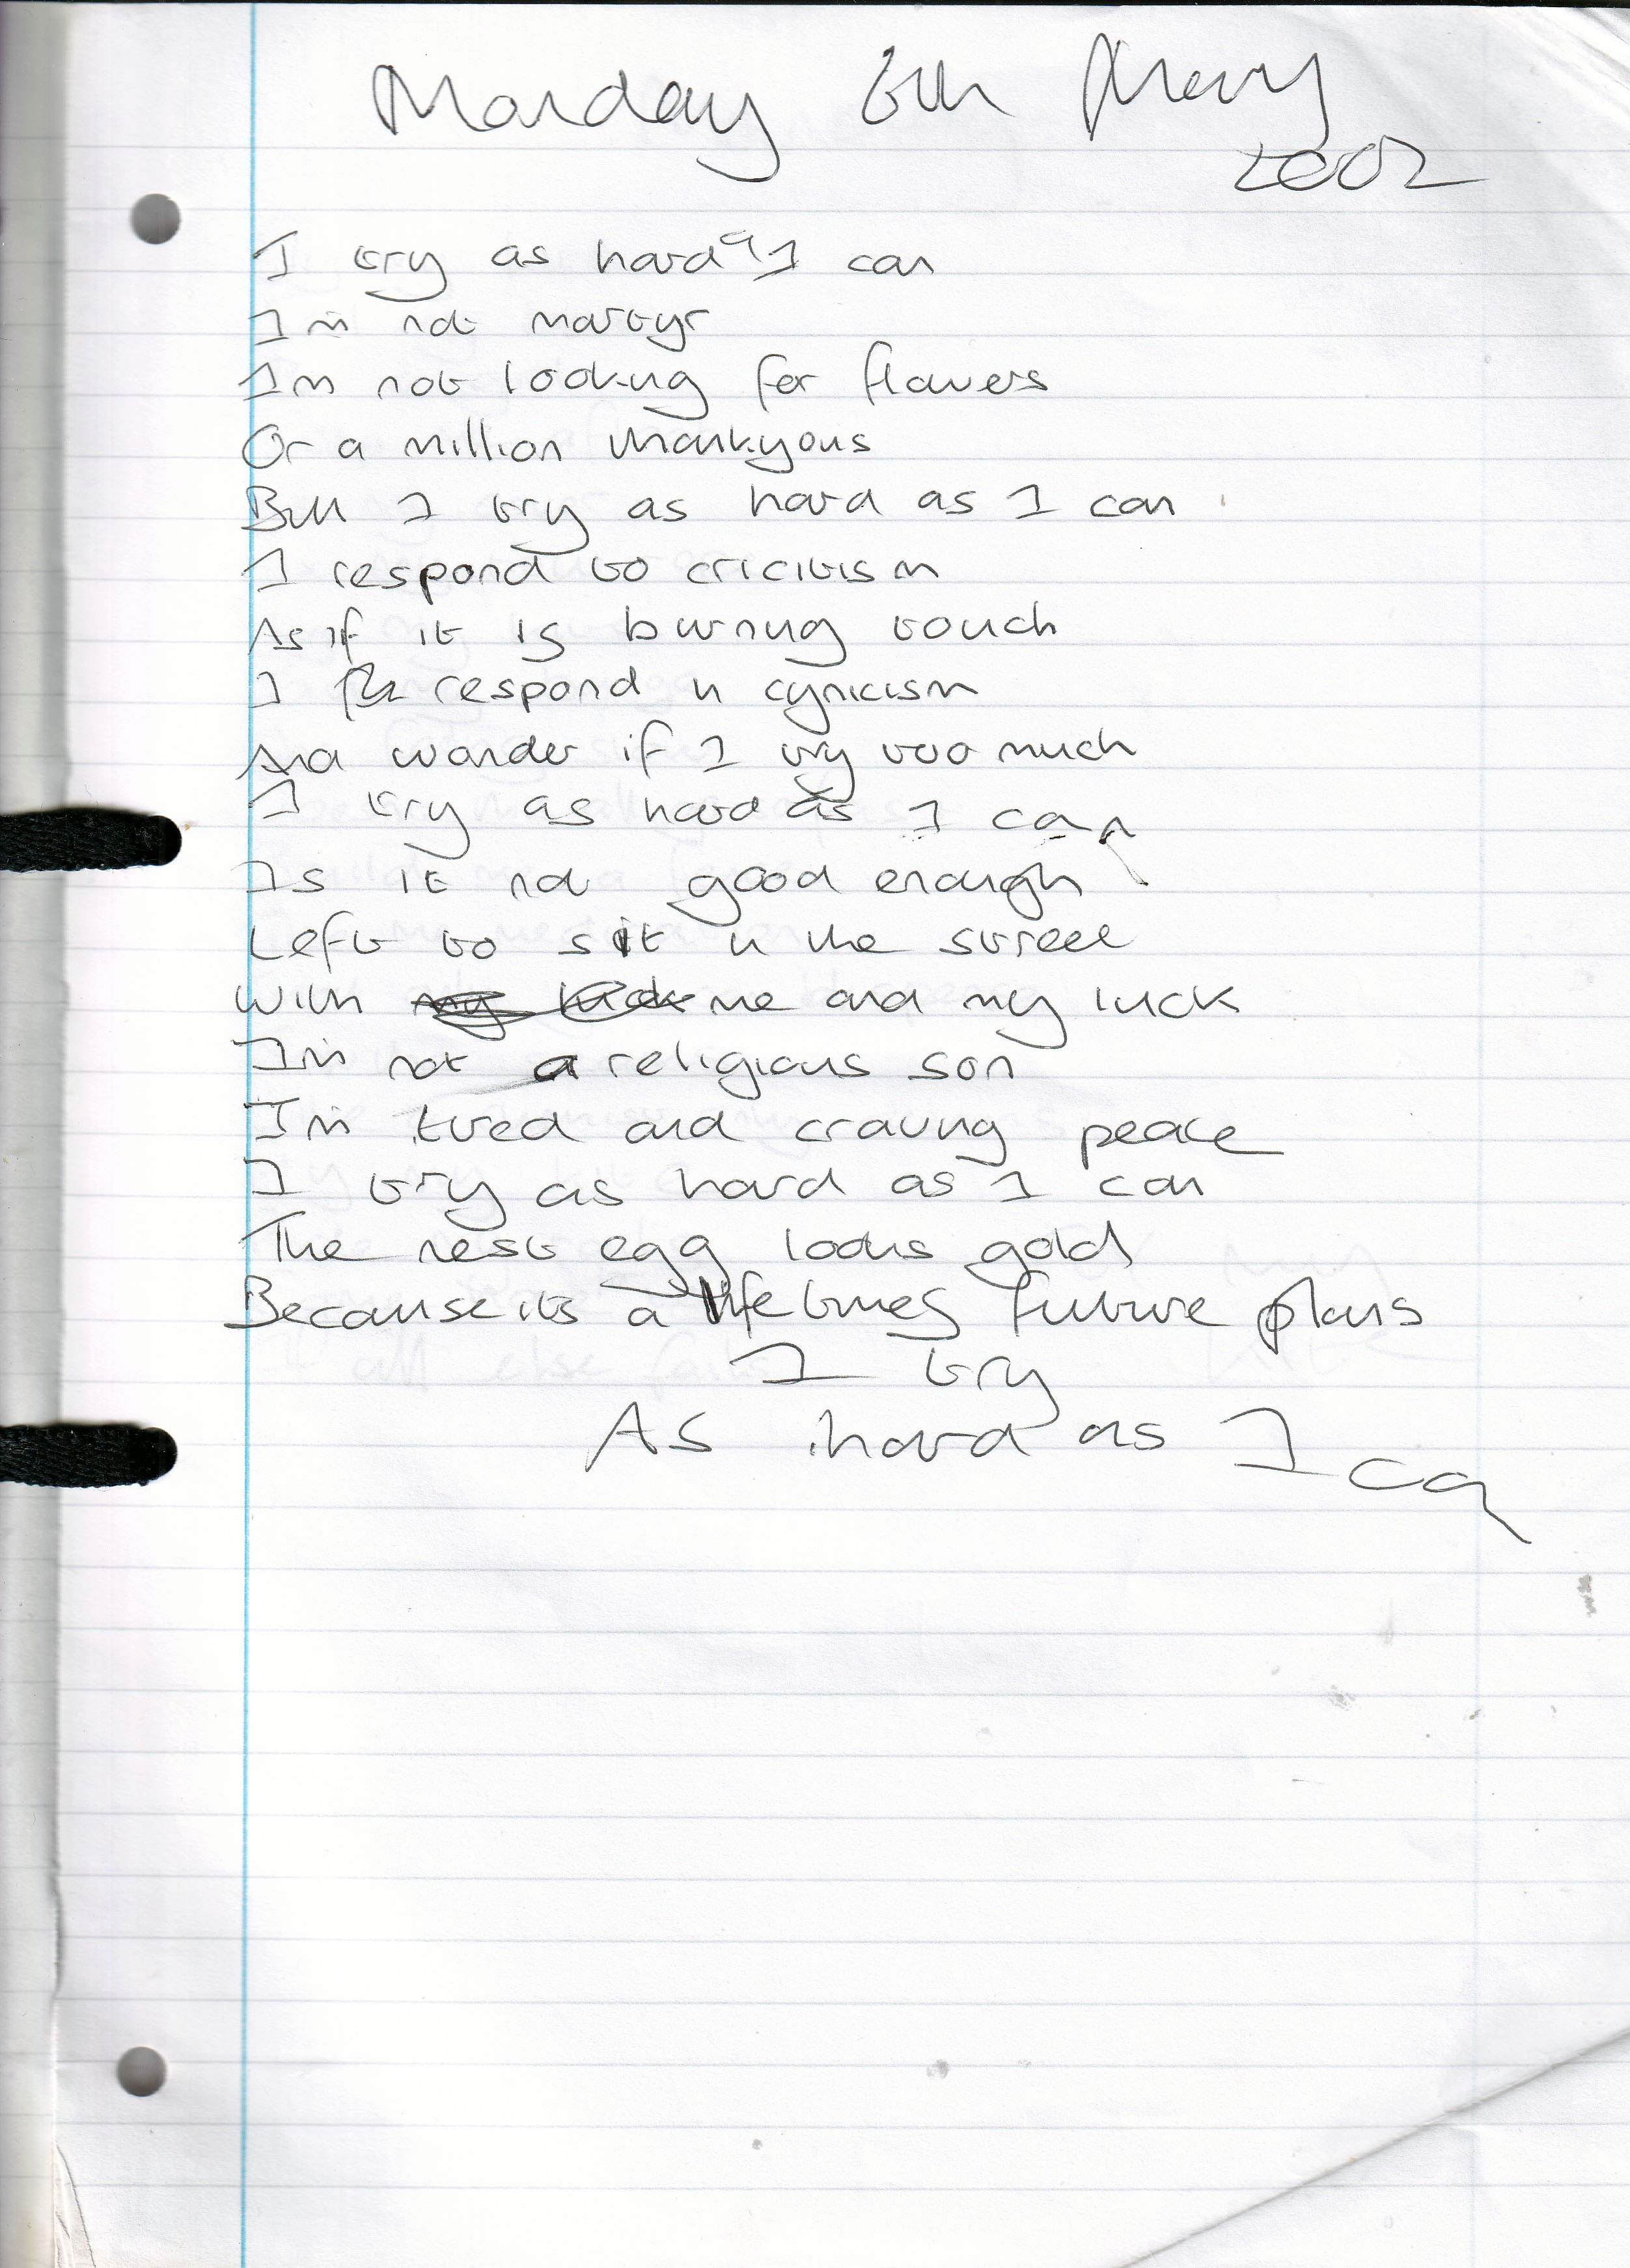 Monday 6th May
2002
I try as hard as I can
I'm not martyr
Im not looking for flowers
Or a million thankyous
But I try as hard as I can
I respond to cricitism
As if it is burning touch
I respond in cynicism
And wonder if I try too much
I try as hard as I can
Is it not good enough
Left to sit in the street
With my luck me and my luck
I'm not a religious son
I'm tired and craving peace
I try as hard as I can
The nest egg looks gold
Because its a lifetimes future plans
I try
As hard as I can